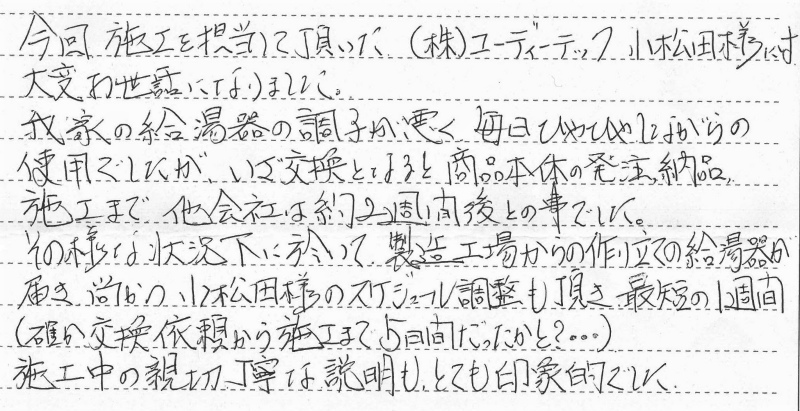 今回 施工を担当して頂いた (株)ユーディーテック 小松田様には
大変お世話になりました。
我家の給湯器の調子が悪く 毎日ひやひやしながらの
使用でしたが、いざ交換となると 商品本体の発注、納品、
施工まで 他会社は約2週間後との事でした。
その様な状況下に於いて 製造工場からの作り立ての給湯器が
届き 尚かつ 小松田様のスケジュール調整も頂き 最短の1週間
(確か交換依頼から施工まで 5日間だったかと?…)
施工中の親切丁寧な説明も、とても印象的でした。